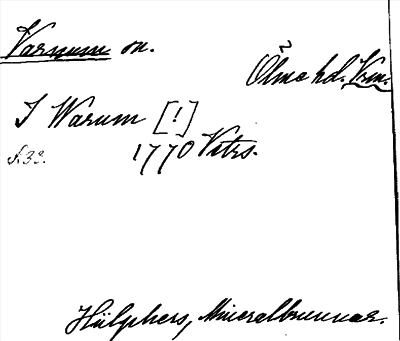 Varnum sn.
Ölme hd. Vrm.
I Warum [!]
s. 33. 1770 Vitrs.
Hülphers, Mineralbrunnar.